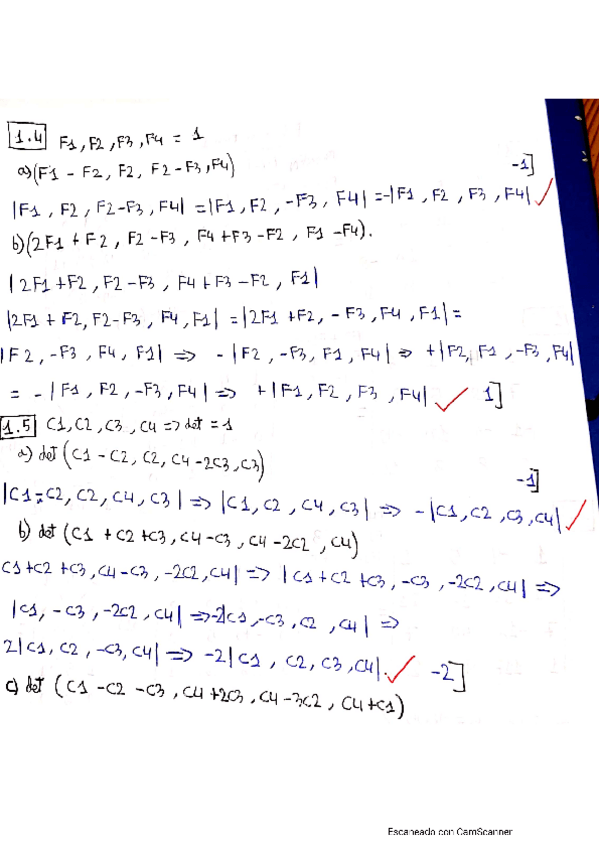 1.4 F1, F2, F3, F4 = 1
a) (F1 - F2, F2, F2-F3, F4) -1]
|F1, F2, F2-F3, F4| = |F1, F2, -F3, F4| = -|F1, F2, F3, F4| ✓
b) (2F1 + F2, F2-F3, F4+F3-F2, F1-F4).
|2F1+F2, F2-F3, F4+F3-F2, F1|
|2F1+F2, F2-F3, F4, F1| = |2F1+F2, -F3, F4, F1| =
|F2, -F3, F4, F1| => -|F2, -F3, F1, F4| => +|F2, F1, -F3, F4|
= -|F1, F2, -F3, F4| => +|F1, F2, F3, F4| ✓ 1]
1.5 C1, C2, C3, C4 => det = 1
a) det (C1-C2, C2, C4-2C3, C3) -1]
|C1-C2, C2, C4, C3| => |C1, C2, C4, C3| => -|C1, C2, C3, C4| ✓
b) det (C1 + C2 + C3, C4-C3, C4-2C2, C4)
C1+C2+C3, C4-C3, -2C2, C4| => |C1+C2+C3, -C3, -2C2, C4| =>
|C1, -C3, -2C2, C4| => -2|C1, -C3, C2, C4| =>
2|C1, C2, -C3, C4| => -2|C1, C2, C3, C4|. ✓ -2]
c) det (C1-C2-C3, C4+2C3, C4-3C2, C4+C1)
Escaneado con CamScanner